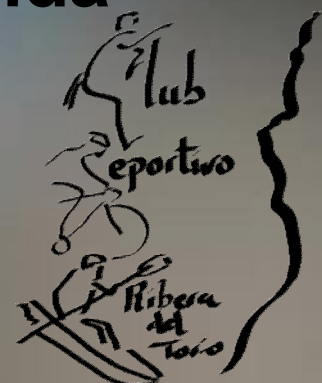 Club
Deportivo
Ribera
del
Toro